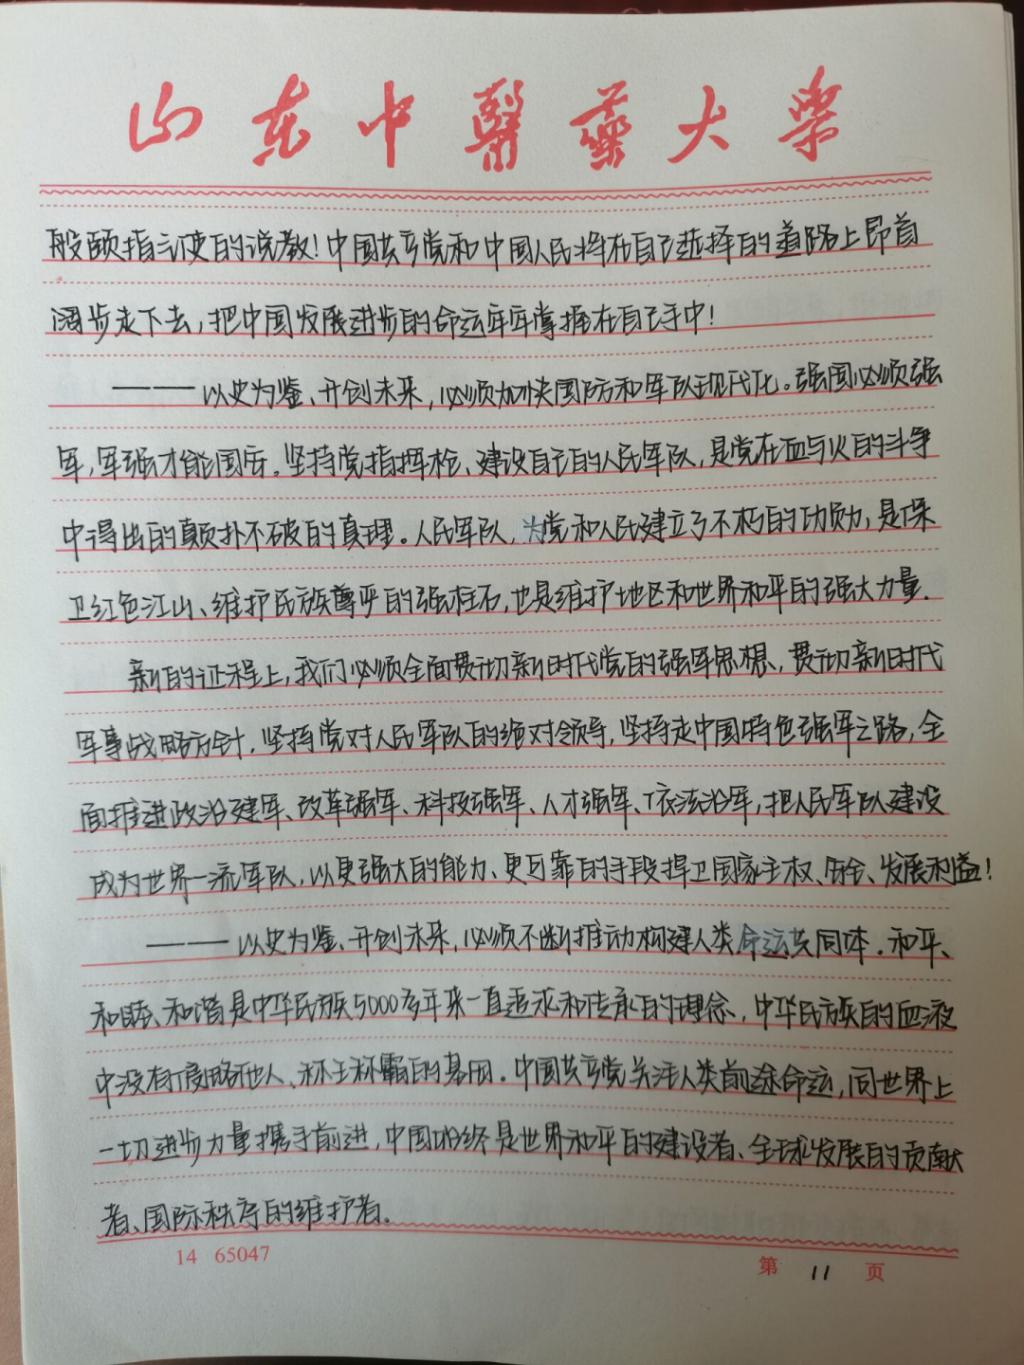 山东中医药大学
般颐指气使的说教！中国共产党和中国人民将在自己选择的道路上昂首
阔步走下去，把中国发展进步的命运牢牢掌握在自己手中！
——以史为鉴、开创未来，必须加快国防和军队现代化。强国必须强
军，军强才能国安。坚持党指挥枪、建设自己的人民军队，是党在血与火的斗争
中得出的颠扑不破的真理。人民军队，为党和人民建立了不朽的功勋，是保
卫红色江山、维护民族尊严的强柱石，也是维护地区和世界和平的强大力量。
新的征程上，我们必须全面贯彻新时代党的强军思想、贯彻新时代
军事战略方针，坚持党对人民军队的绝对领导，坚持走中国特色强军之路，全
面推进政治建军、改革强军、科技强军、人才强军、依法治军，把人民军队建设
成为世界一流军队，以更强大的能力、更可靠的手段捍卫国家主权、安全、发展利益！
——以史为鉴、开创未来，必须不断推动构建人类命运共同体。和平、
和睦、和谐是中华民族5000多年来一直追求和传承的理念，中华民族的血液
中没有侵略他人、称王称霸的基因。中国共产党关注人类前途命运，同世界上
一切进步力量携手前进，中国始终是世界和平的建设者、全球发展的贡献
者、国际秩序的维护者。
14 65047
第 11 页